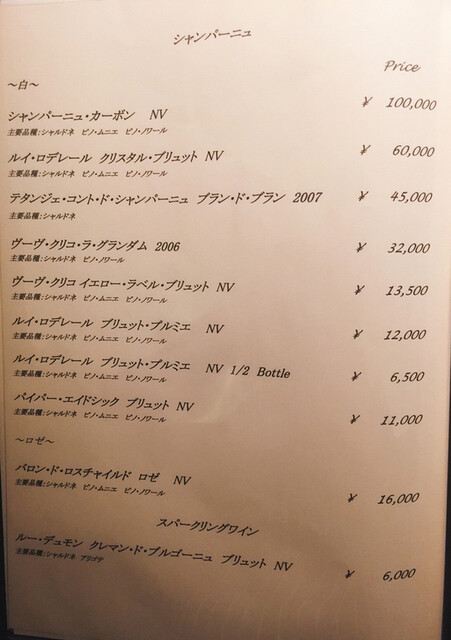 シャンパーニュ
Price
～白～
シャンパーニュ・カーボン NV ¥ 100,000
主要品種：シャルドネ ピノ・ムニエ ピノ・ノワール
ルイ・ロデレール クリスタル・ブリュット NV ¥ 60,000
主要品種：シャルドネ ピノ・ムニエ ピノ・ノワール
テタンジェ・コント・ド・シャンパーニュ ブラン・ド・ブラン 2007 ¥ 45,000
主要品種：シャルドネ
ヴーヴ・クリコ・ラ・グランダム 2006 ¥ 32,000
主要品種：シャルドネ ピノ・ノワール
ヴーヴ・クリコ イエロー・ラベル・ブリュット NV ¥ 13,500
主要品種：シャルドネ ピノ・ムニエ ピノ・ノワール
ルイ・ロデレール ブリュット・プルミエ NV ¥ 12,000
主要品種：シャルドネ ピノ・ムニエ ピノ・ノワール
ルイ・ロデレール ブリュット・プルミエ NV 1/2 Bottle ¥ 6,500
主要品種：シャルドネ ピノ・ムニエ ピノ・ノワール
パイパー・エイドシック ブリュット NV ¥ 11,000
主要品種：シャルドネ ピノ・ムニエ ピノ・ノワール
～ロゼ～
バロン・ド・ロスチャイルド ロゼ NV ¥ 16,000
主要品種：シャルドネ ピノ・ムニエ ピノ・ノワール
スパークリングワイン
ルー・デュモン クレマン・ド・ブルゴーニュ ブリュット NV ¥ 6,000
主要品種：シャルドネ アリゴテ